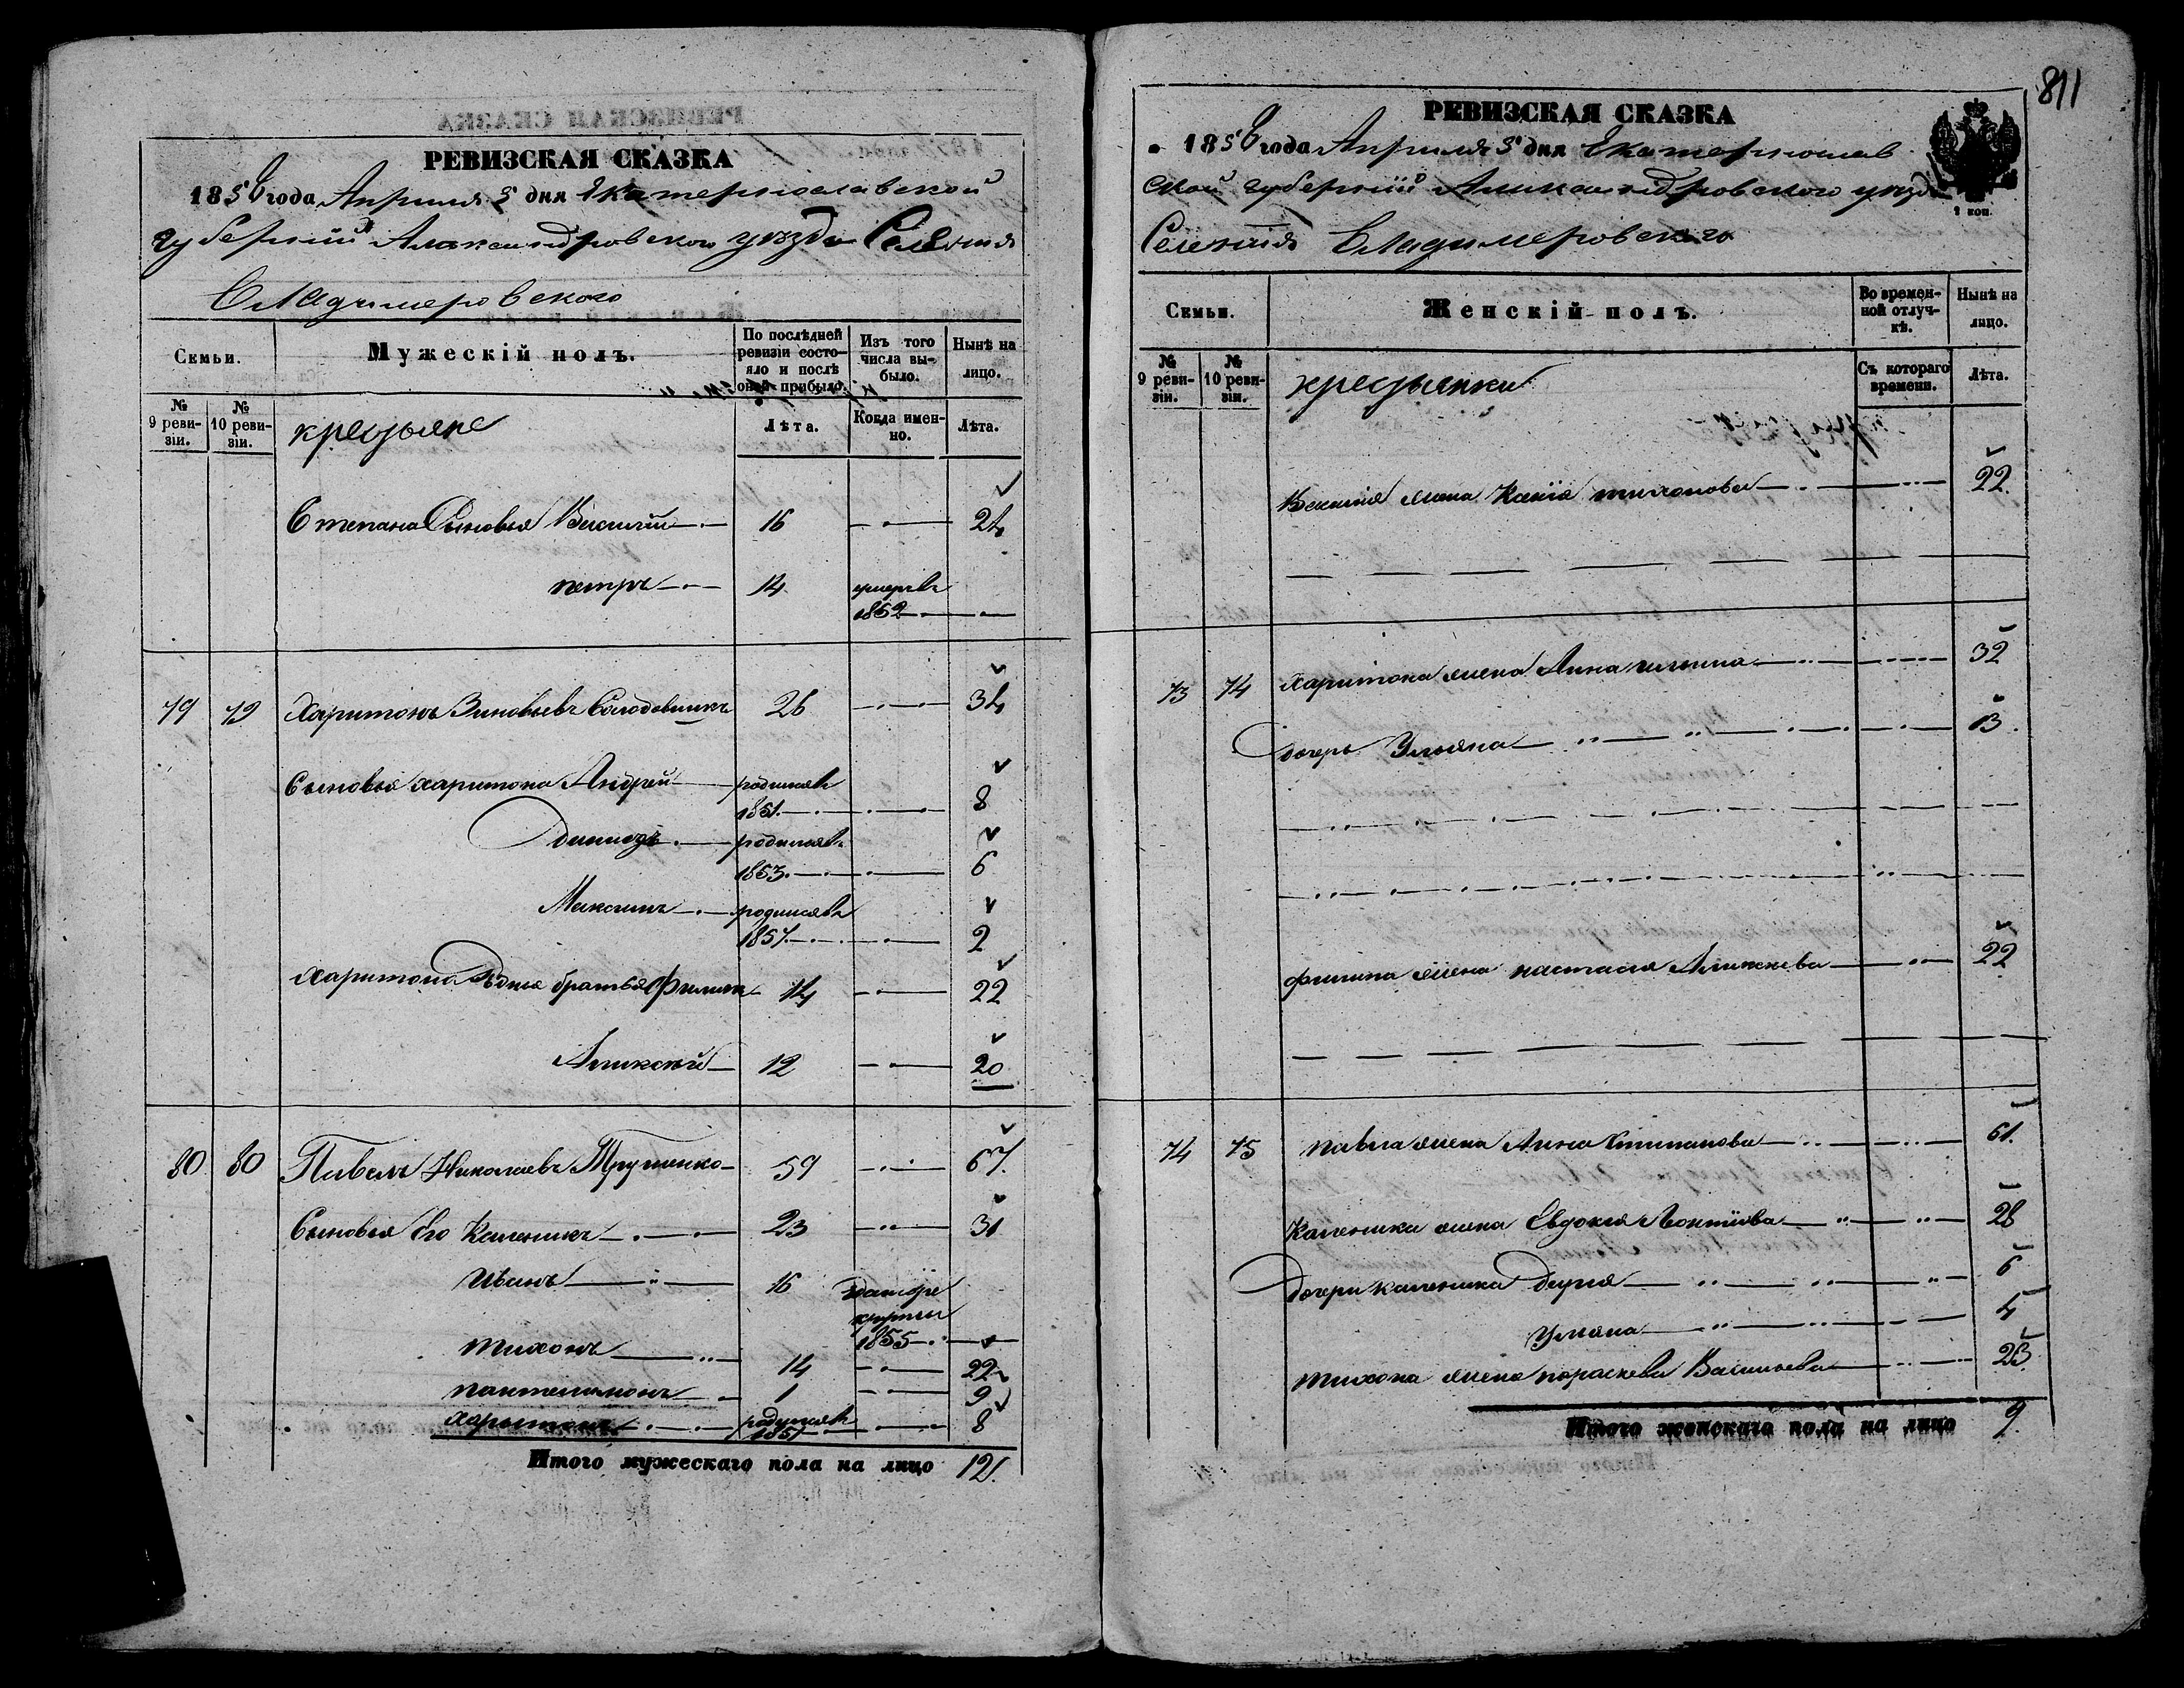 РЕВИЗСКАЯ СКАЗКА
1858 года Апреля 5 дня Екатеринославской
губернии Александровского уезда Селения
Владимеровского
Семьи.
Мужескій полъ.
По послѣдней ревизіи состояло и послѣ оной прибыло.
Изъ того числа выбыло.
Нынѣ на лицо.
№ 9 ревизіи.
№ 10 ревизіи.
крестьяне
Лѣта.
Когда именно.
Лѣта.
Степана Сыновья Василій 16 24
петръ 14 умеръ въ 1852
79 79 Харитонъ Зиновьевъ Солодовникъ 26 34
Сыновья харитона Андрей родился въ 1851 8
родился въ 1853 6
Максимъ родился въ 1857 2
Харитона родные братья Филипъ 14 22
Аликсѣй 12 20
80 80 Павелъ Николаевъ 59 67
Сыновья его Каленикъ 23 31
Иванъ 16 1855
тихонъ 14 22
пантелимонъ 1 9
харытонъ родился въ 1851 8
Итого мужескаго пола на лицо 12
811
РЕВИЗСКАЯ СКАЗКА
1858 года Апреля 5 дня Екатеринослав
ской губерніи Александровского уезда
Селенія Владимеровского
1 коп.
Семьи.
Женскій полъ.
Во временной отлучкѣ.
Нынѣ на лицо.
№ 9 ревизіи.
№ 10 ревизіи.
крестьянки
Съ котораго времени.
Лѣта.
Василія жена тихонова 22
73 74 Харитона жена Анна 32
дочерь Ульяна 13
филипа жена настасия 22
74 75 павла жена Анна Стипанова 61
Каленика жена Евдокия Леонтіова 28
дочери каленика дарья 6
Ульяна 4
тихона жена параскева Васильева 23
Итого женскаго пола на лицо 9